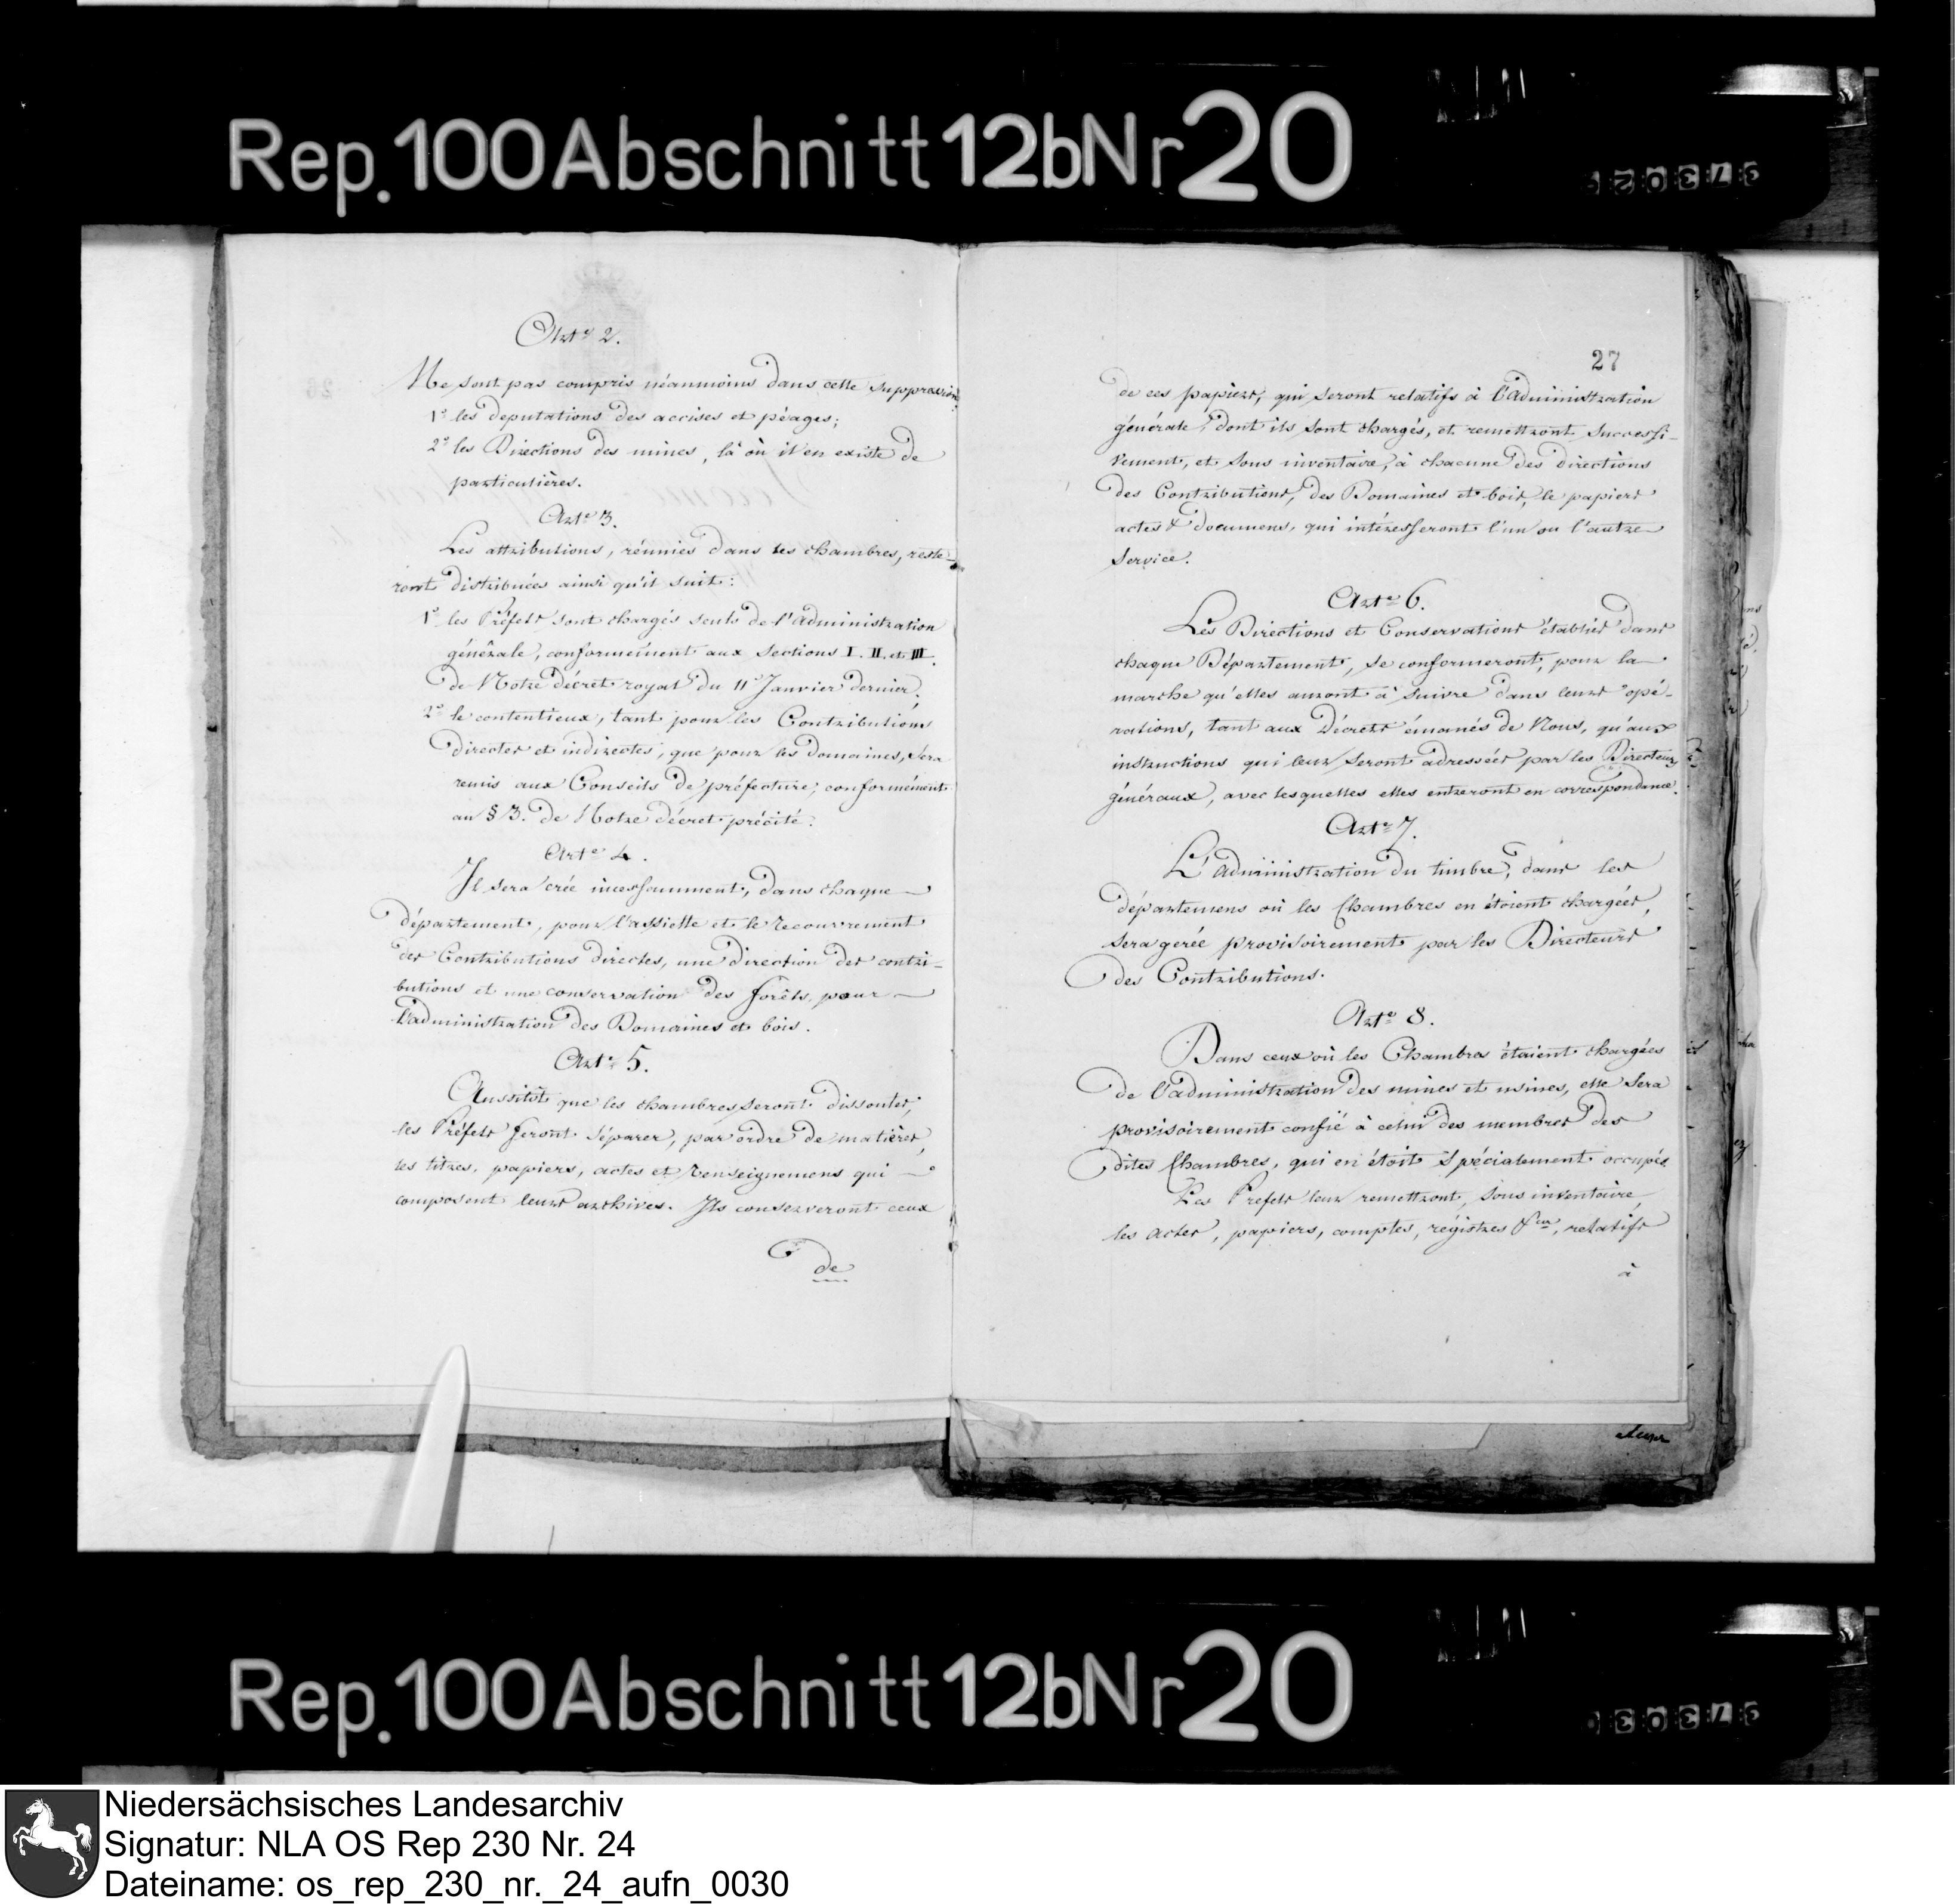 Rep. 100 Abschnitt 12b Nr 20
Art.e 2.
Ne sont pas compris néanmoins dans cette suppression
1.° les deputations des accises et péages;
2.° les Directions des mines, là où il en existe de
particulières.
Art.e 3.
Les attributions, réunies dans les chambres, reste-
ront distribuées ainsi qu'il suit:
1.° les Préfets sont chargés seuls de l'administration
générale, conformément aux Sections I. II. et III.
de Notre décret royal du 11 Janvier dernier.
2.° le contentieux, tant pour les Contributions
directes et indirectes, que pour les domaines, sera
remis aux Conseils de préfecture, conformément
au § 3. de Notre décret précité.
Art.e 4.
Il sera créé incessamment, dans chaque
département, pour l'assiette et le recouvrement
des Contributions directes, une direction des contri-
butions et une conservation des forêts, pour
l'administration des Domaines et bois.
Art.e 5.
Aussitôt que les chambres seront dissoutes,
les Préfets feront séparer, par ordre de matières,
les titres, papiers, actes et renseignemens qui
composent leurs archives. Ils conserveront ceux
de
27
de ces papiers, qui seront relatifs à l'administration
générale, dont ils sont chargés, et remettront successi-
vement, et sous inventaire, à chacune des directions
des Contributions, des Domaines et bois, le papiers
actes & documens, qui intéresseront l'un ou l'autre
Service.
Art.e 6.
Les Directions et Conservations établies dans
chaque Département, se conformeront, pour la
marche qu'elles auront à suivre dans leurs opé-
rations, tant aux Décrets émanés de Nous, qu'aux
instructions qui leur seront adressées par les Directeurs
généraux, avec lesquelles elles entreront en correspondance.
Art.e 7.
L'administration du timbre, dans les
départemens où les Chambres en étoient chargées,
sera gerée provisoirement par les Directeurs
des Contributions.
Art.e 8.
Dans ceux où les Chambres étaient chargées
de l'administration des mines et usines, elle sera
provisoirement confié à celui des membres des
dites Chambres, qui en étoit spécialement occupés.
Les Prefets leur remettront, sous inventaire,
les actes, papiers, comptes, régistres &ca, relatifs
à
Rep. 100 Abschnitt 12b Nr 20
Niedersächsisches Landesarchiv
Signatur: NLA OS Rep 230 Nr. 24
Dateiname: os_rep_230_nr._24_aufn_0030